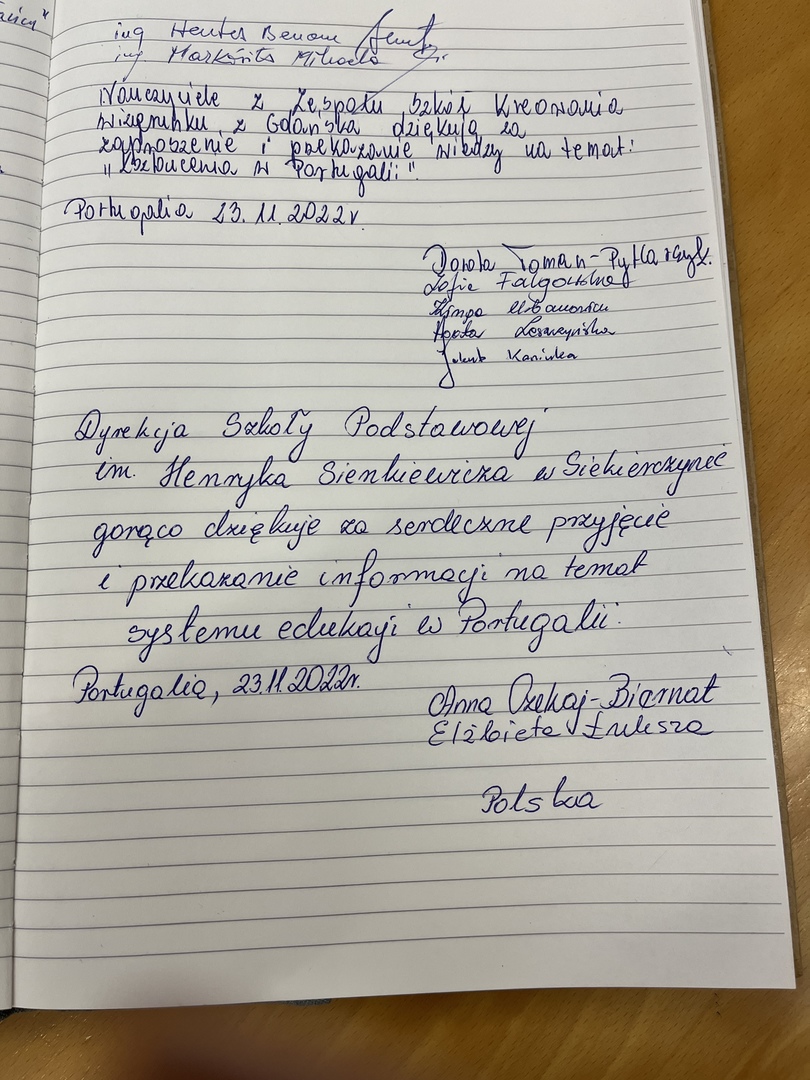 ing Hentes Benone
ing Markovits Mihaela
Nauczyciele z Zespołu Szkół Kreowania
Wizerunku z Gdańska dziękują za
zaproszenie i przekazanie wiedzy na temat:
„Kształcenia w Portugalii".
Portugalia 23.11.2022r.
Dorota Toman-Pytlarczyk.
Zofia Falgowska
Kinga Urbanowicz
Aneta Leszczyńska
Jakub Kaniuka
Dyrekcja Szkoły Podstawowej
im. Henryka Sienkiewicza w Siekierczynie
gorąco dziękuje za serdeczne przyjęcie
i przekazanie informacji na temat
systemu edukacji w Portugalii.
Portugalia, 23.11.2022r.
Anna Czekaj-Biernat
Elżbieta Łuksza
Polska